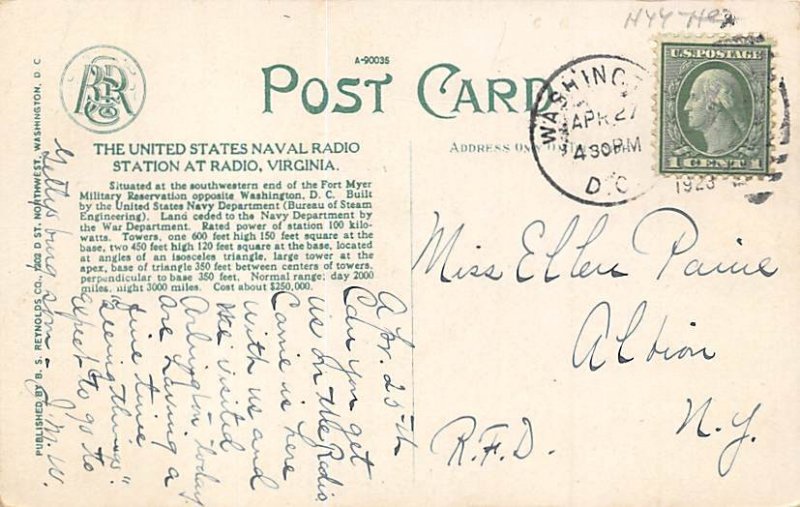 A-90035
POST CARD
THE UNITED STATES NAVAL RADIO
STATION AT RADIO, VIRGINIA.
Situated at the southwestern end of the Fort Myer
Military Reservation opposite Washington, D. C. Built
by the United States Navy Department (Bureau of Steam
Engineering). Land ceded to the Navy Department by
the War Department. Rated power of station 100 kilo-
watts. Towers, one 600 feet high 150 feet square at the
base, two 450 feet high 120 feet square at the base, located
at angles of an isosceles triangle, large tower at the
apex, base of triangle 350 feet between centers of towers,
perpendicular to base 350 feet. Normal range: day 2000
miles, night 3000 miles. Cost about $250,000.
PUBLISHED BY B. S. REYNOLDS CO., D ST. NORTHWEST, WASHINGTON, D. C.
ADDRESS
WASHINGT
APR 27
430PM
D.C.
1923
U.S. POSTAGE
1 CENT 1
Miss Ellen Paine
Albion
N.Y.
R.F.D.
Ap. 25th
Can you get
us on the Radio.
Carrie is here
with us and
We visited
Arlington today
are having a
fine time
"seeing things."
expect to go to
Gettysburg soon - J.M.W.